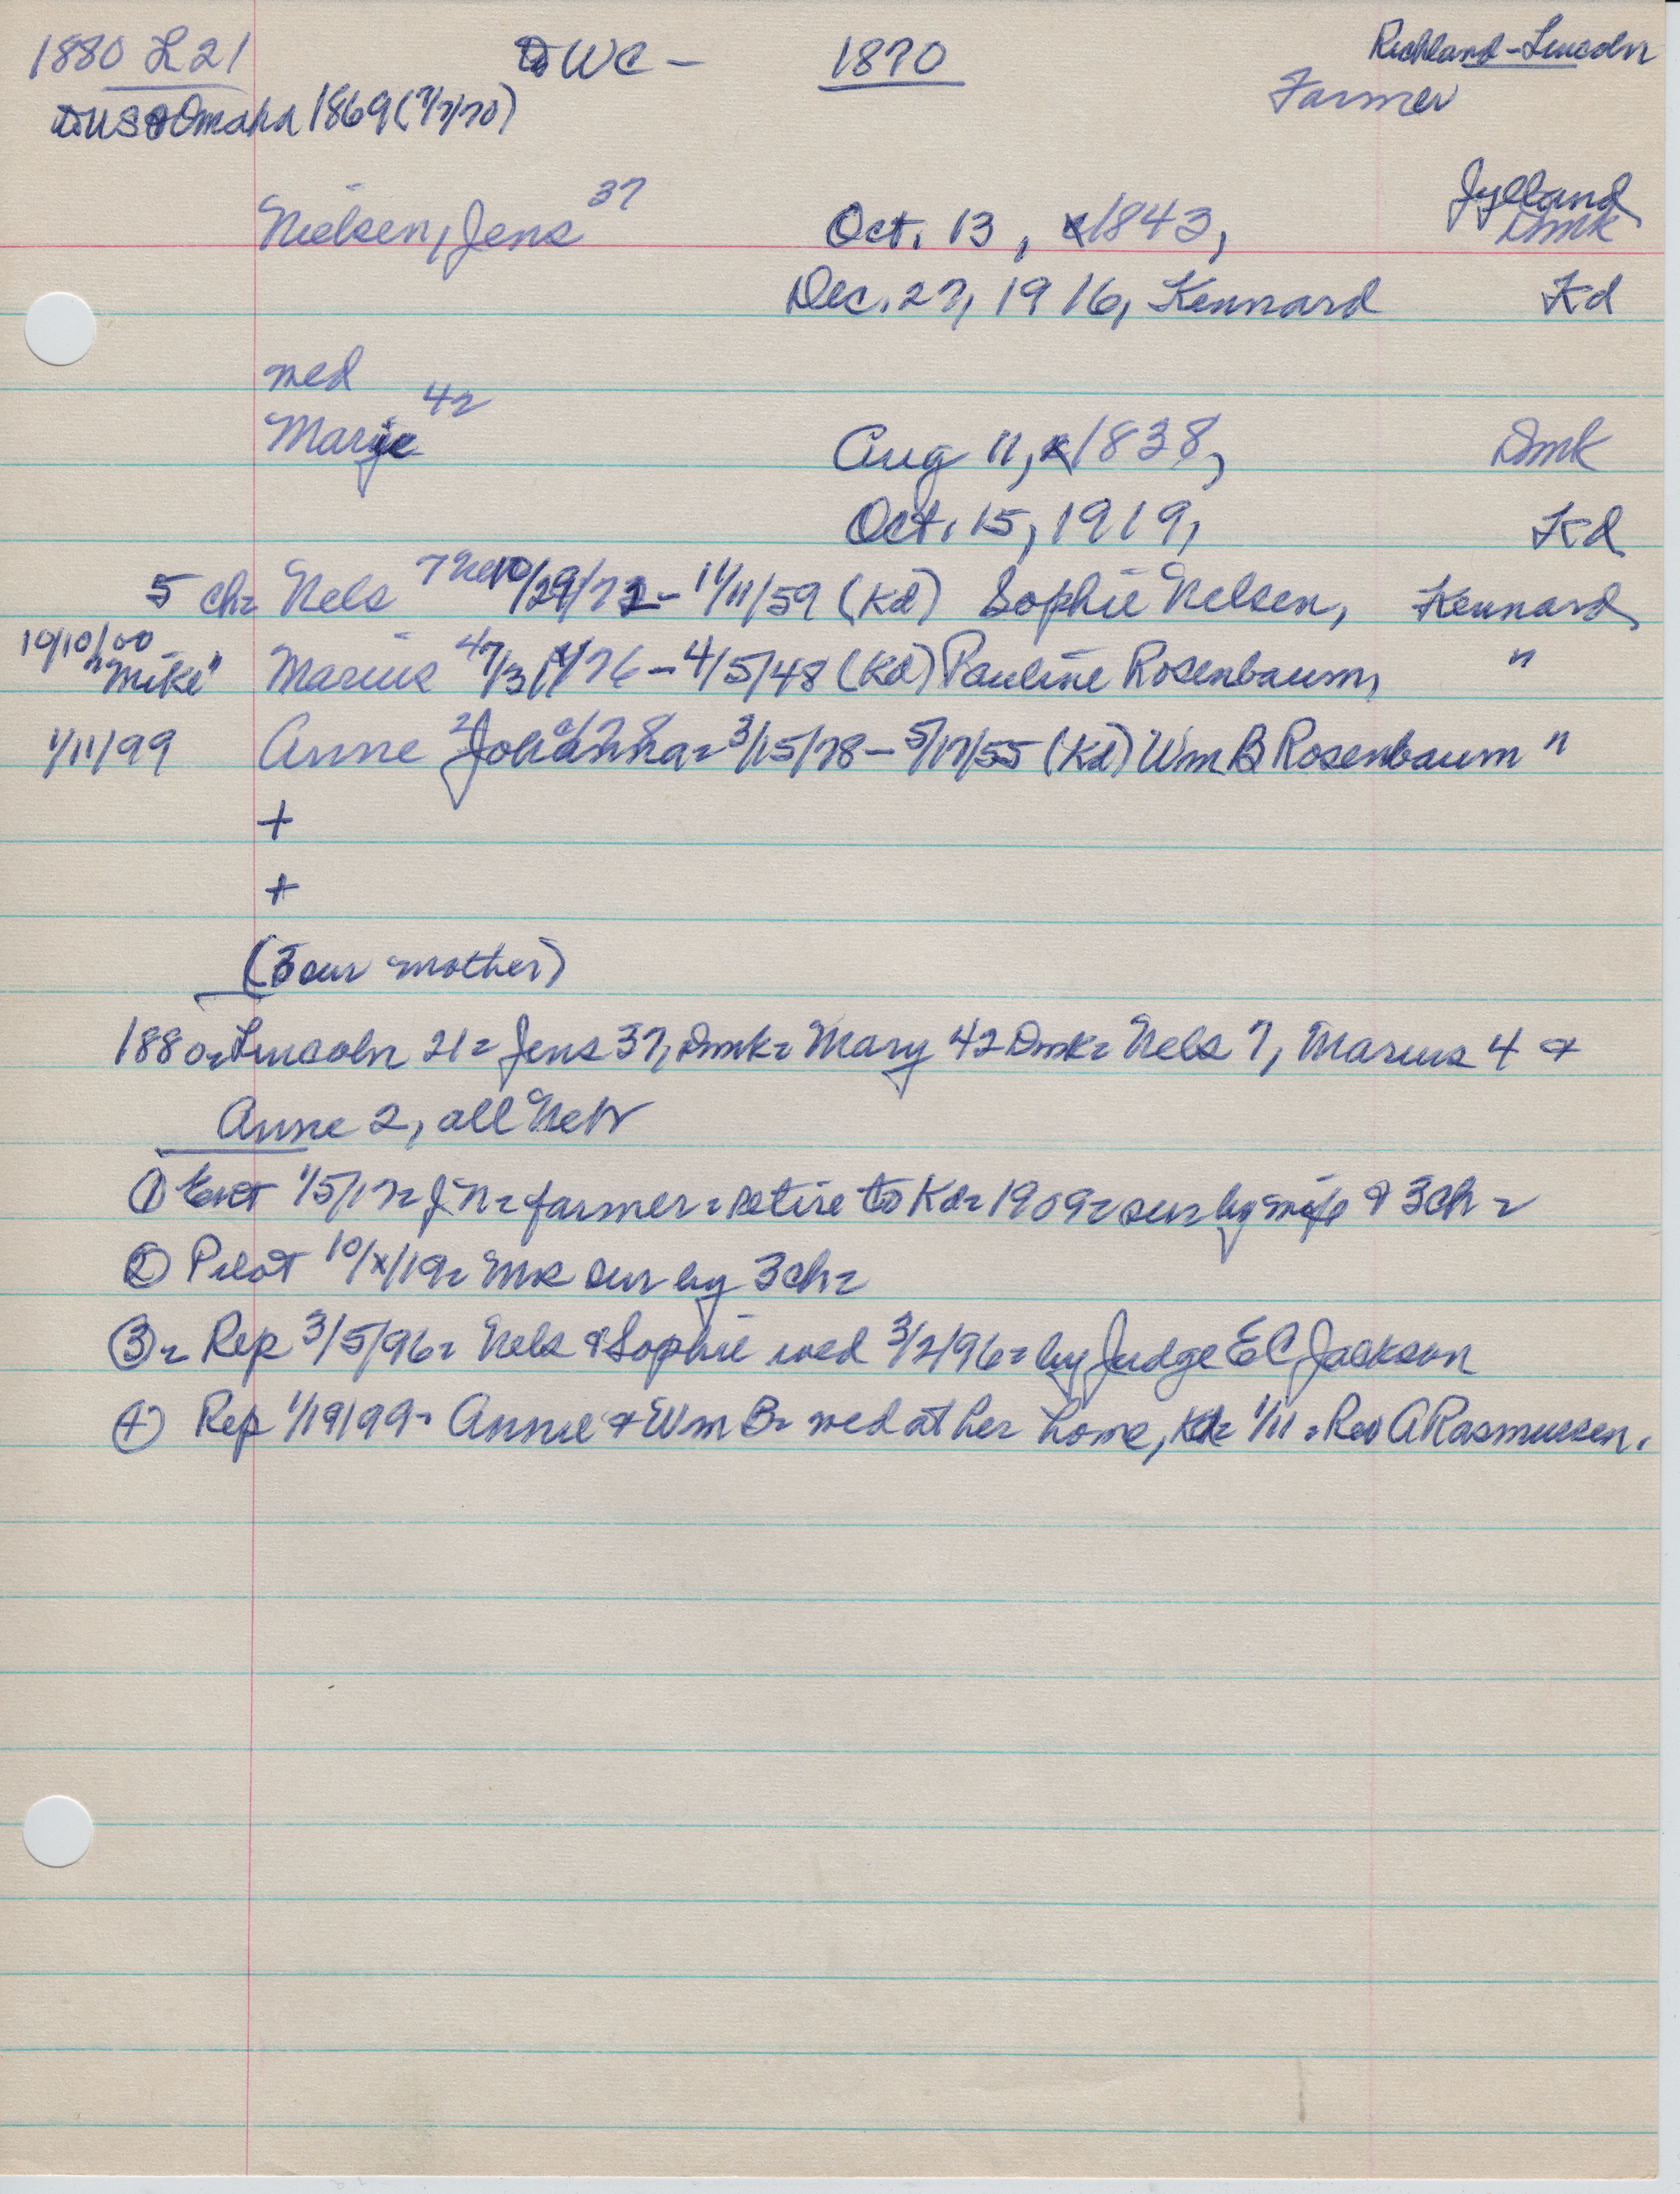 1880 L21 WC - 1870 Richland-Lincoln
US Omaha 1869 (7/7/70) Farmer
Nielsen, Jens 37 Oct. 13, 1843, Jylland Dmk
Dec. 27, 1916, Kennard Kd
med
Marie 42 Aug 11, 1838, Dmk
Oct. 15, 1919, Kd
5 ch= Nels 7 10/29/72 - 11/11/59 (Kd) Sophie Nelsen, Kennard
10/10/00 "Mike" Marius 4 7/31/76 - 4/5/48 (Kd) Pauline Rosenbaum, "
1/11/99 Anne 2 Johanna= 3/15/78 - 5/17/55 (Kd) Wm B Rosenbaum "
+
+
(3 sur mother)
1880= Lincoln 21= Jens 37, Dmk= Mary 42 Dmk= Nels 7, Marius 4 &
Anne 2, all Neb
① Ent 1/5/17= JN= farmer= retire to Kd= 1909= sur by wife & 3 ch=
② Pilot 10/x/19= sur by 3 ch=
③= Rep 3/5/96= Nels & Sophie wed 3/2/96= by Judge E C Jackson
④ Rep 1/19/99= Annie & Wm B= wed at her home, Kd= 1/11= Rev A Rasmussen.